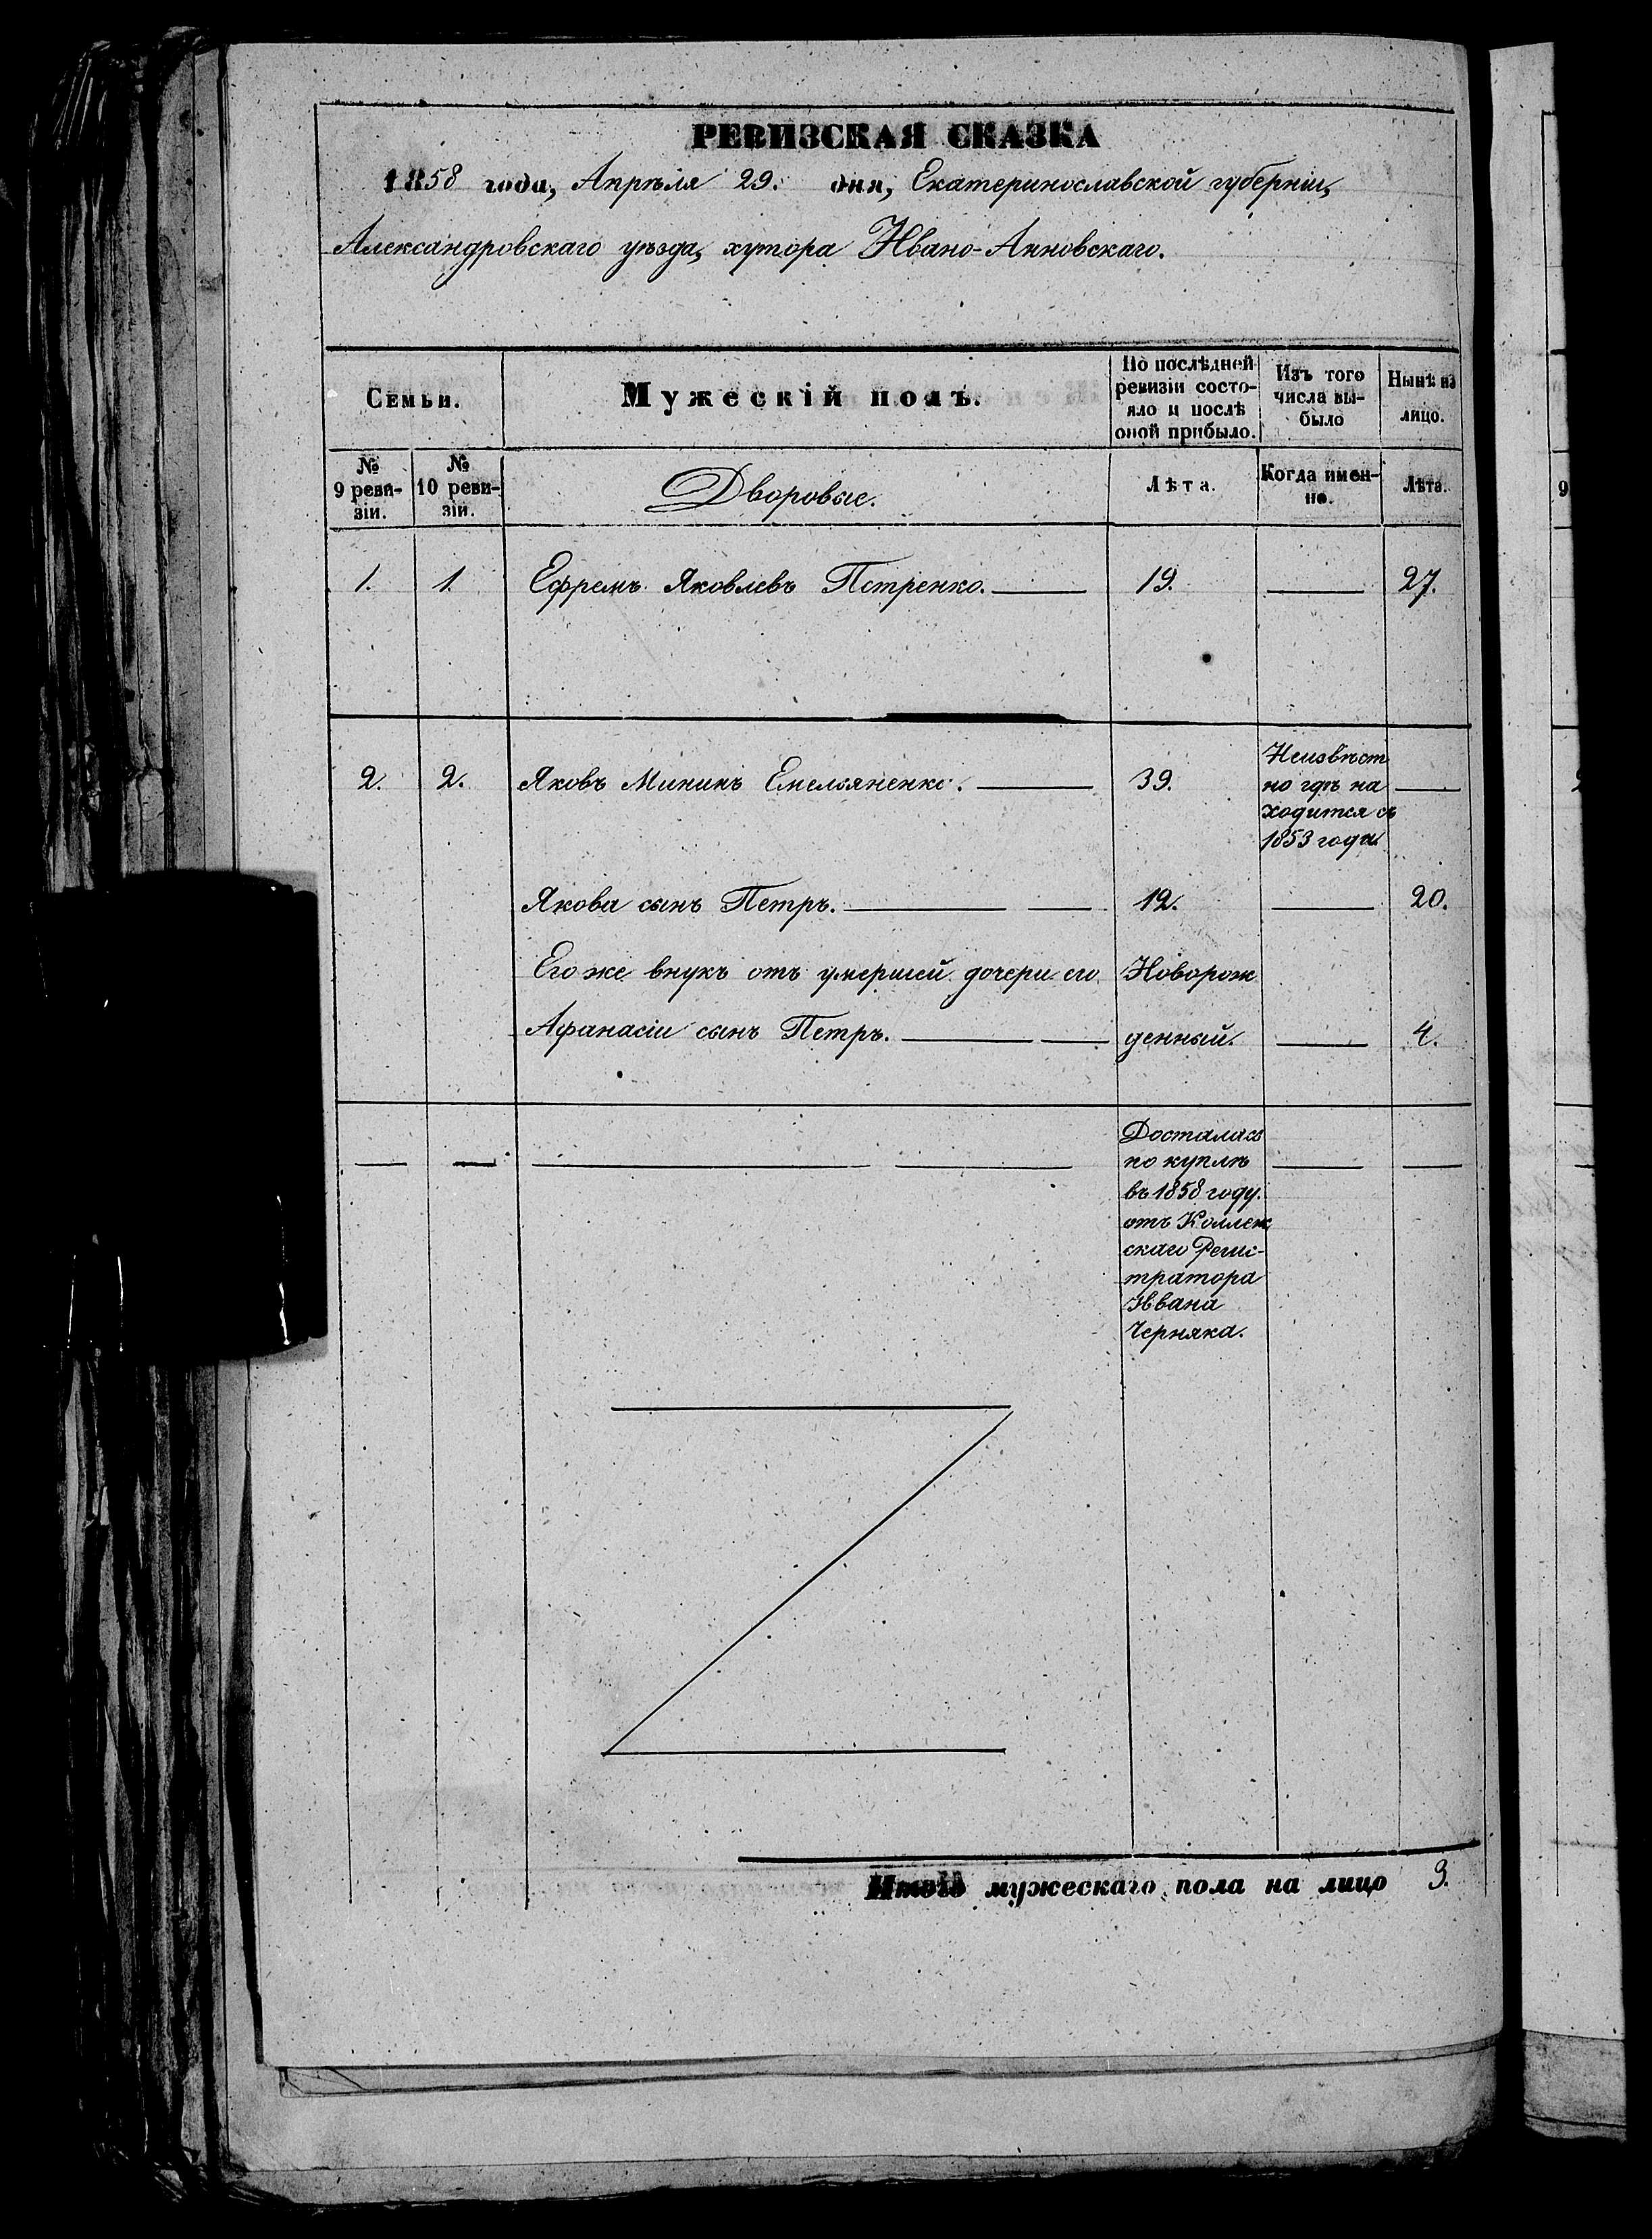 РЕВИЗСКАЯ СКАЗКА
1858 года, Апрѣля 29. дня, Екатеринославской губерніи,
Александровскаго уѣзда, хутора Ивано-Анновскаго.
Семьи.
Мужескій полъ.
По послѣдней
ревизіи состо-
яло и послѣ
оной прибыло.
Изъ того
числа вы-
было
Нынѣ на
лицо.
№
9 реви-
зіи.
№
10 реви-
зіи.
Дворовые.
Лѣта.
Когда имен-
но.
Лѣта.
1. 1. Ефремъ Яковлевъ Петренко. 19. 27.
2. 2. Яковъ Мининъ Емельяненко. 39.
Неизвѣст
но гдѣ на
ходится съ
1853 года.
Якова сынъ Петръ. 12. 20.
Его же внукъ отъ умершей дочери его Новорож
Афанасіи сынъ Петръ. денный. 4.
Досталась
по куплѣ
въ 1858 году.
отъ Коллеж
скаго Регис-
тратора
Ивана
Черняка.
Итого мужескаго пола на лицо 3.
9